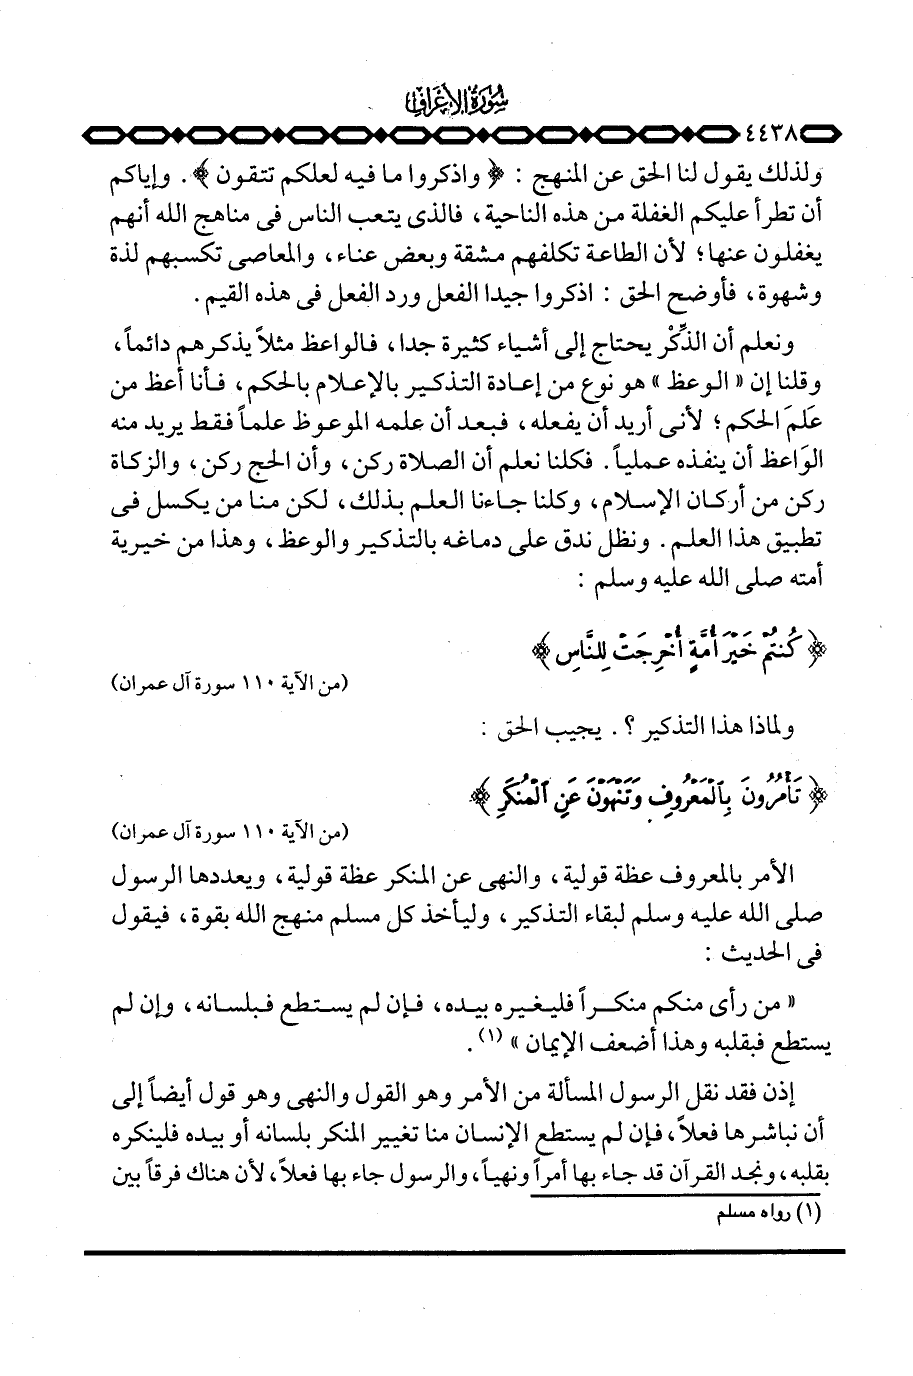 سورة الأعراف
٤٤٣٨
ولذلك يقول لنا الحق عن المنهج : ﴿ واذكروا ما فيه لعلكم تتقون ﴾ . وإياكم
أن تطرأ عليكم الغفلة من هذه الناحية ، فالذى يتعب الناس فى مناهج الله أنهم
يغفلون عنها ؛ لأن الطاعة تكلفهم مشقة وبعض عناء ، والمعاصى تكسبهم لذة
وشهوة ، فأوضح الحق : اذكروا جيدا الفعل ورد الفعل فى هذه القيم .
ونعلم أن الذِّكْر يحتاج إلى أشياء كثيرة جدا ، فالواعظ مثلاً يذكرهم دائماً ،
وقلنا إن « الوعظ » هو نوع من إعادة التذكير بالإعلام بالحكم ، فأنا أعظ من
عَلمَ الحكم ؛ لأنى أريد أن يفعله ، فبعد أن علمه الموعوظ علماً فقط يريد منه
الواعظ أن ينفذه عملياً . فكلنا نعلم أن الصلاة ركن ، وأن الحج ركن ، والزكاة
ركن من أركان الإسلام ، وكلنا جاءنا العلم بذلك ، لكن منا من يكسل فى
تطبيق هذا العلم . ونظل ندق على دماغه بالتذكير والوعظ ، وهذا من خيرية
أمته صلى الله عليه وسلم :
﴿ كُنتُمْ خَيْرَ أُمَّةٍ أُخْرِجَتْ لِلنَّاسِ ﴾
(من الآية ١١٠ سورة آل عمران)
ولماذا هذا التذكير ؟ . يجيب الحق :
﴿ تَأْمُرُونَ بِالْمَعْرُوفِ وَتَنْهَوْنَ عَنِ الْمُنكَرِ ﴾
(من الآية ١١٠ سورة آل عمران)
الأمر بالمعروف عظة قولية ، والنهى عن المنكر عظة قولية ، ويعددها الرسول
صلى الله عليه وسلم لبقاء التذكير ، وليأخذ كل مسلم منهج الله بقوة ، فيقول
فى الحديث :
« من رأى منكم منكراً فليغيره بيده ، فإن لم يستطع فبلسانه ، وإن لم
يستطع فبقلبه وهذا أضعف الإيمان » (١) .
إذن فقد نقل الرسول المسألة من الأمر وهو القول والنهى وهو قول أيضاً إلى
أن نباشرها فعلاً ، فإن لم يستطع الإنسان منا تغيير المنكر بلسانه أو بيده فلينكره
بقلبه ، ونجد القرآن قد جاء بها أمراً ونهياً ، والرسول جاء بها فعلاً ، لأن هناك فرقاً بين
(١) رواه مسلم